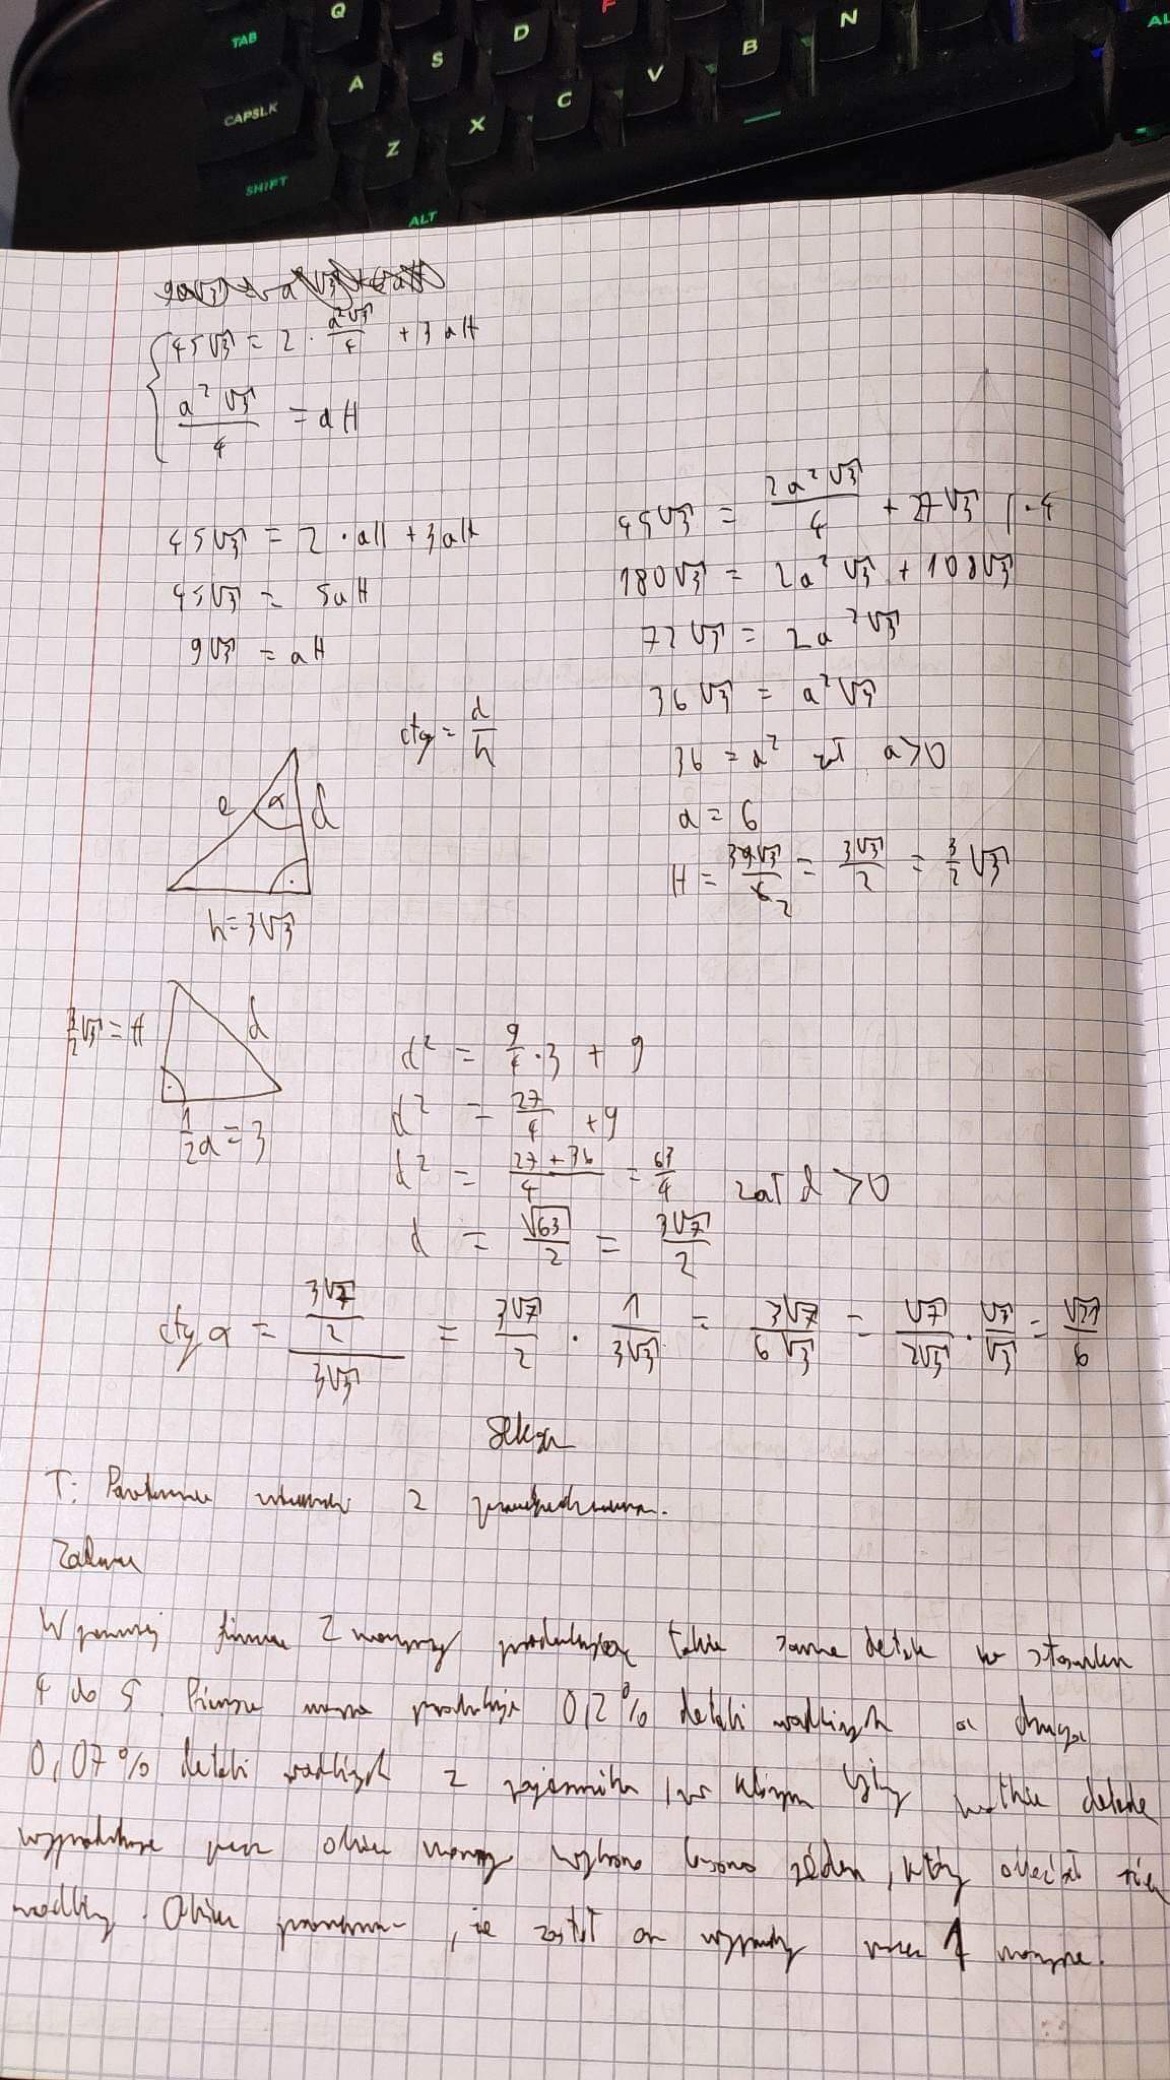 Q
TAB
A S D F
CAPSLK
Z X C V B N
SHIFT
ALT
AL
45√3 = 2 · a²√3/4 + 3aH
a²√3/4 = aH
45√3 = 2 · aH + 3aH
45√3 = 5aH
9√3 = aH
45√3 = 2a²√3/4 + 27√3 / · 4
180√3 = 2a²√3 + 108√3
72√3 = 2a²√3
36√3 = a²√3
36 = a² zał a>0
a = 6
H = 9√3/6 = 3√3/2 = 3/2 √3
ctg = d/h
e α d
h = 3√3
3/2 √3 = H d
1/2 a = 3
d² = 9/4 · 3 + 9
d² = 27/4 + 9
d² = 27 + 36/4 = 63/4 zał d > 0
d = √63/2 = 3√7/2
ctg α = 3√7/2 / 3√3 = 3√7/2 · 1/3√3 = 3√7/6√3 = √7/2√3 · √3/√3 = √21/6
T: z
Zadanie
W pewnej firmie 2 maszyny produkują takie same detale w stosunku
4 do 5. Pierwsza maszyna produkuje 0,2% detali wadliwych a druga
0,07% detali wadliwych z pojemnika, w którym były wszystkie detale
wyprodukowane przez obie maszyny wybrano losowo jeden, który okazał się
wadliwy. Oblicz, że został on przez 1 maszynę.